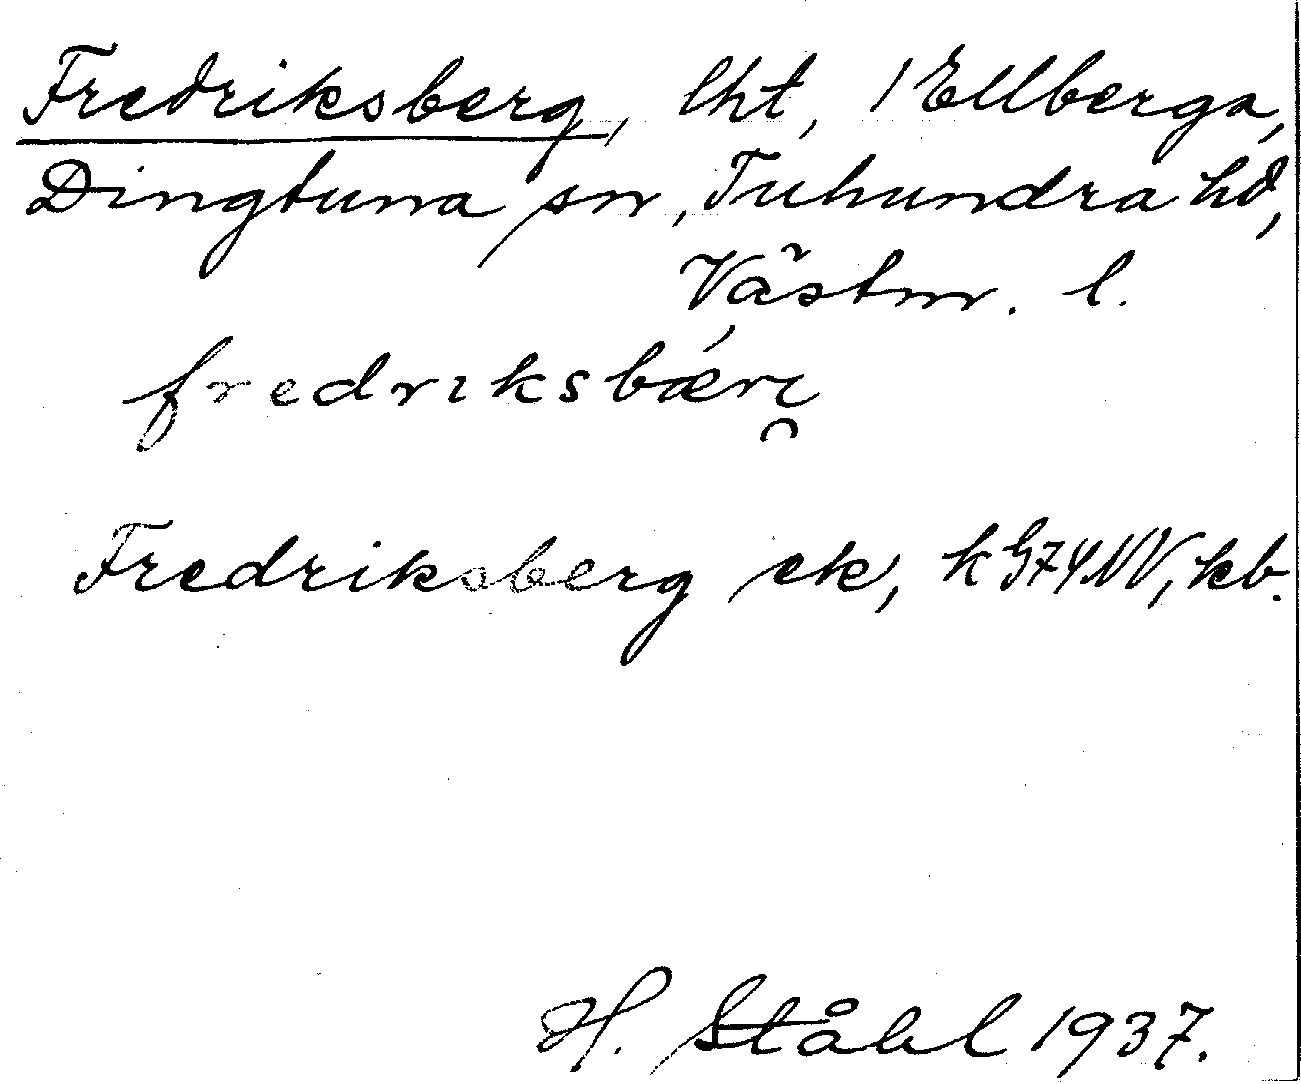 Fredriksberg, lht, 1 Ellberga,
Dingtuna sn, Tuhundra hd,
Västm. l.
fredriksbæri̯
Fredriksberg ek, k G74NV, kb.
H. Ståhl 1937.